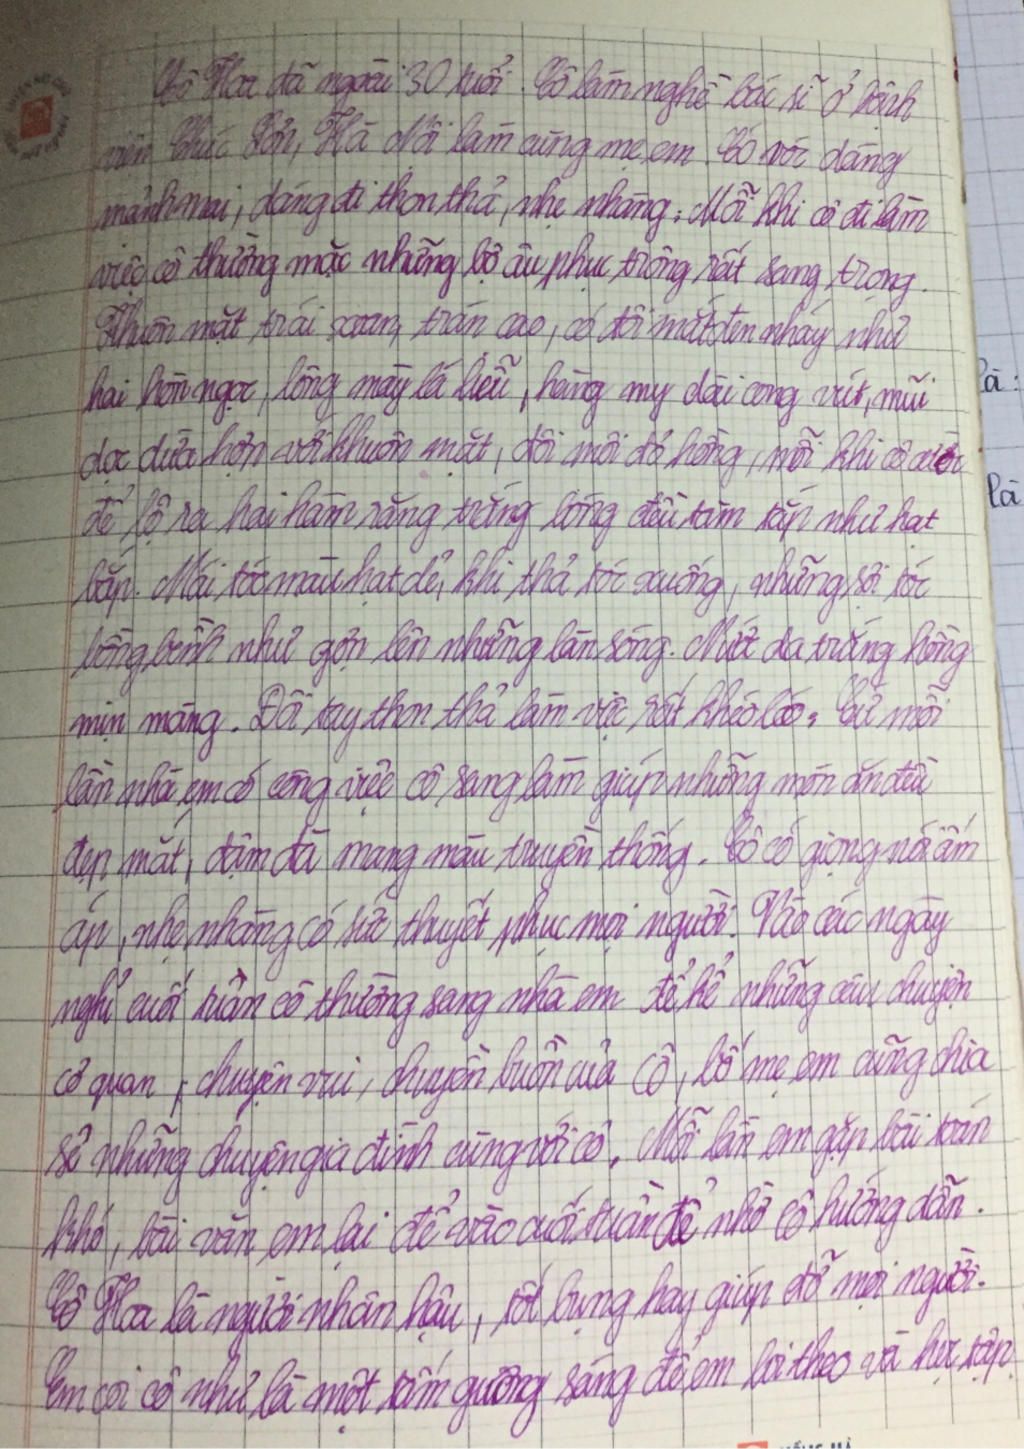 Cô Hoa đã ngoài 30 tuổi. Cô làm nghề bác sĩ ở bệnh
viện Phúc Sơn, Hà Nội làm cùng mẹ em. Cô vóc dáng
mảnh mai, dáng đi thon thả, nhẹ nhàng. Mỗi khi cô đi làm
việc cô thường mặc những bộ âu phục trông rất sang trọng.
Khuôn mặt trái xoan, trán cao, có đôi mắt đen nháy như
hai hòn ngọc, lông mày lá liễu, hàng my dài cong vút, mũi
dọc dừa hơn với khuôn mặt, đôi môi đỏ hồng, mỗi khi cô cười
để lộ ra hai hàm răng trắng bóng đều tăm tắp như hạt
bắp. Mái tóc màu hạt dẻ, khi thả tóc xuống, những sợi tóc
bồng bềnh như gợn lên những làn sóng. Nước da trắng hồng
mịn màng. Đôi tay thon thả làm việc rất khéo léo. Cứ mỗi
lần nhà em có công việc cô sang làm giúp những món ăn đều
đẹp mắt, đậm đà mang màu truyền thống. Cô có giọng nói ấm
áp, nhẹ nhàng có sức thuyết phục mọi người. Vào các ngày
nghỉ cuối tuần cô thường sang nhà em để kể những câu chuyện
cơ quan, chuyện vui, chuyện buồn của cô, bố mẹ em cũng chia
sẻ những chuyện gia đình cùng với cô. Mỗi lần em gặp bài toán
khó, bài văn em lại để vào cuối tuần để nhờ cô hướng dẫn.
Cô Hoa là người nhân hậu, tốt bụng hay giúp đỡ mọi người.
Em coi cô như là một tấm gương sáng để em noi theo và học tập.
là:
là